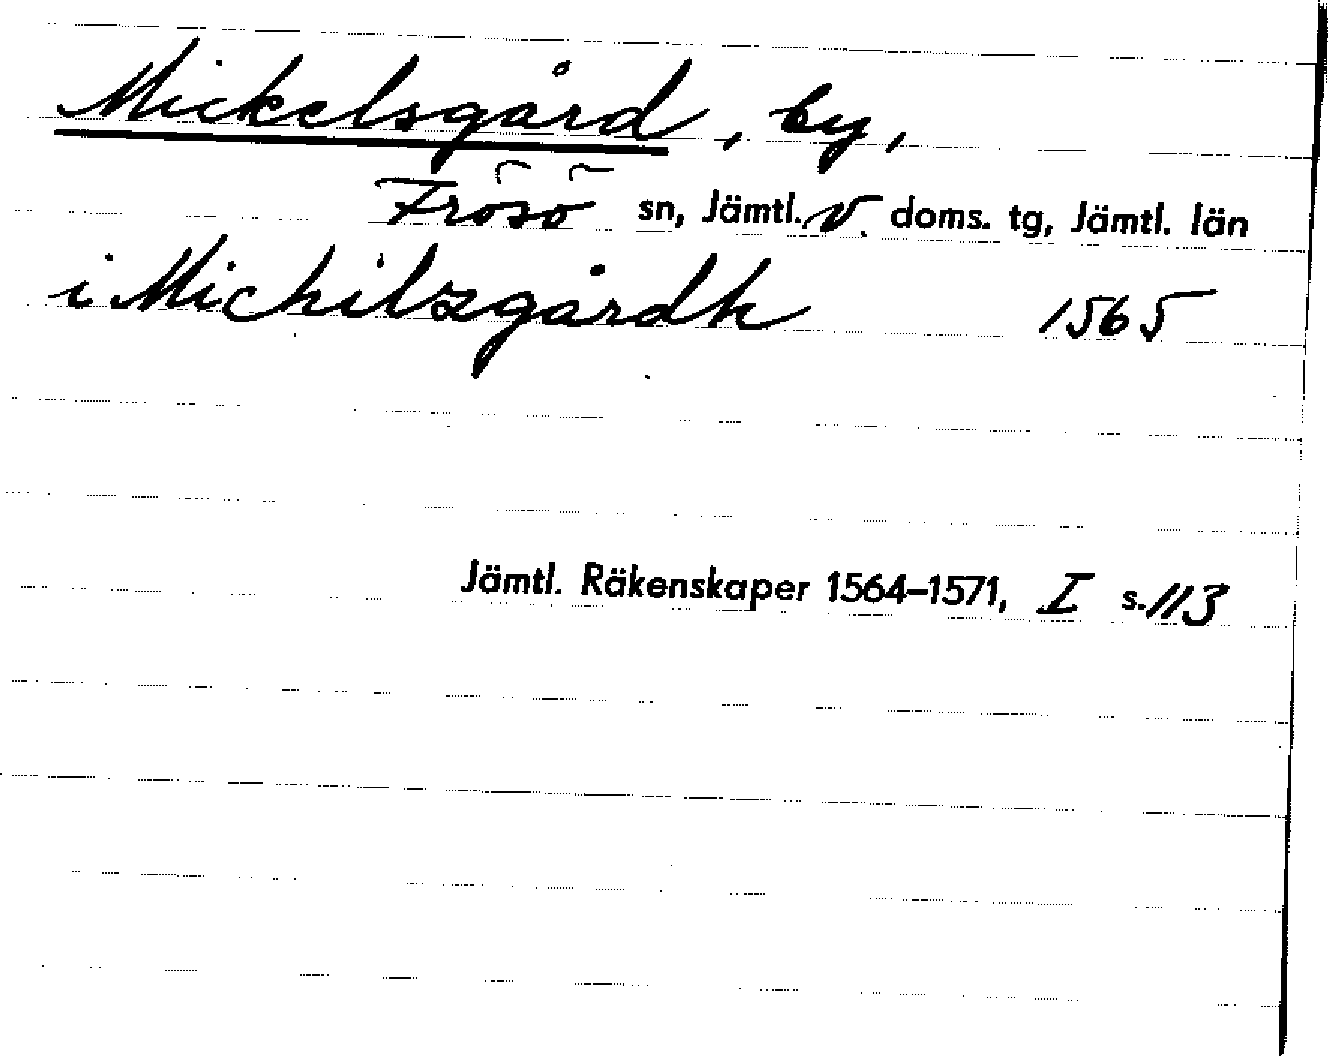 Mickelsgård, by,
Frösö sn, Jämtl. V. doms. tg, Jämtl. län
i Michilzgårdh 1565
Jämtl. Räkenskaper 1564–1571, I s. 113